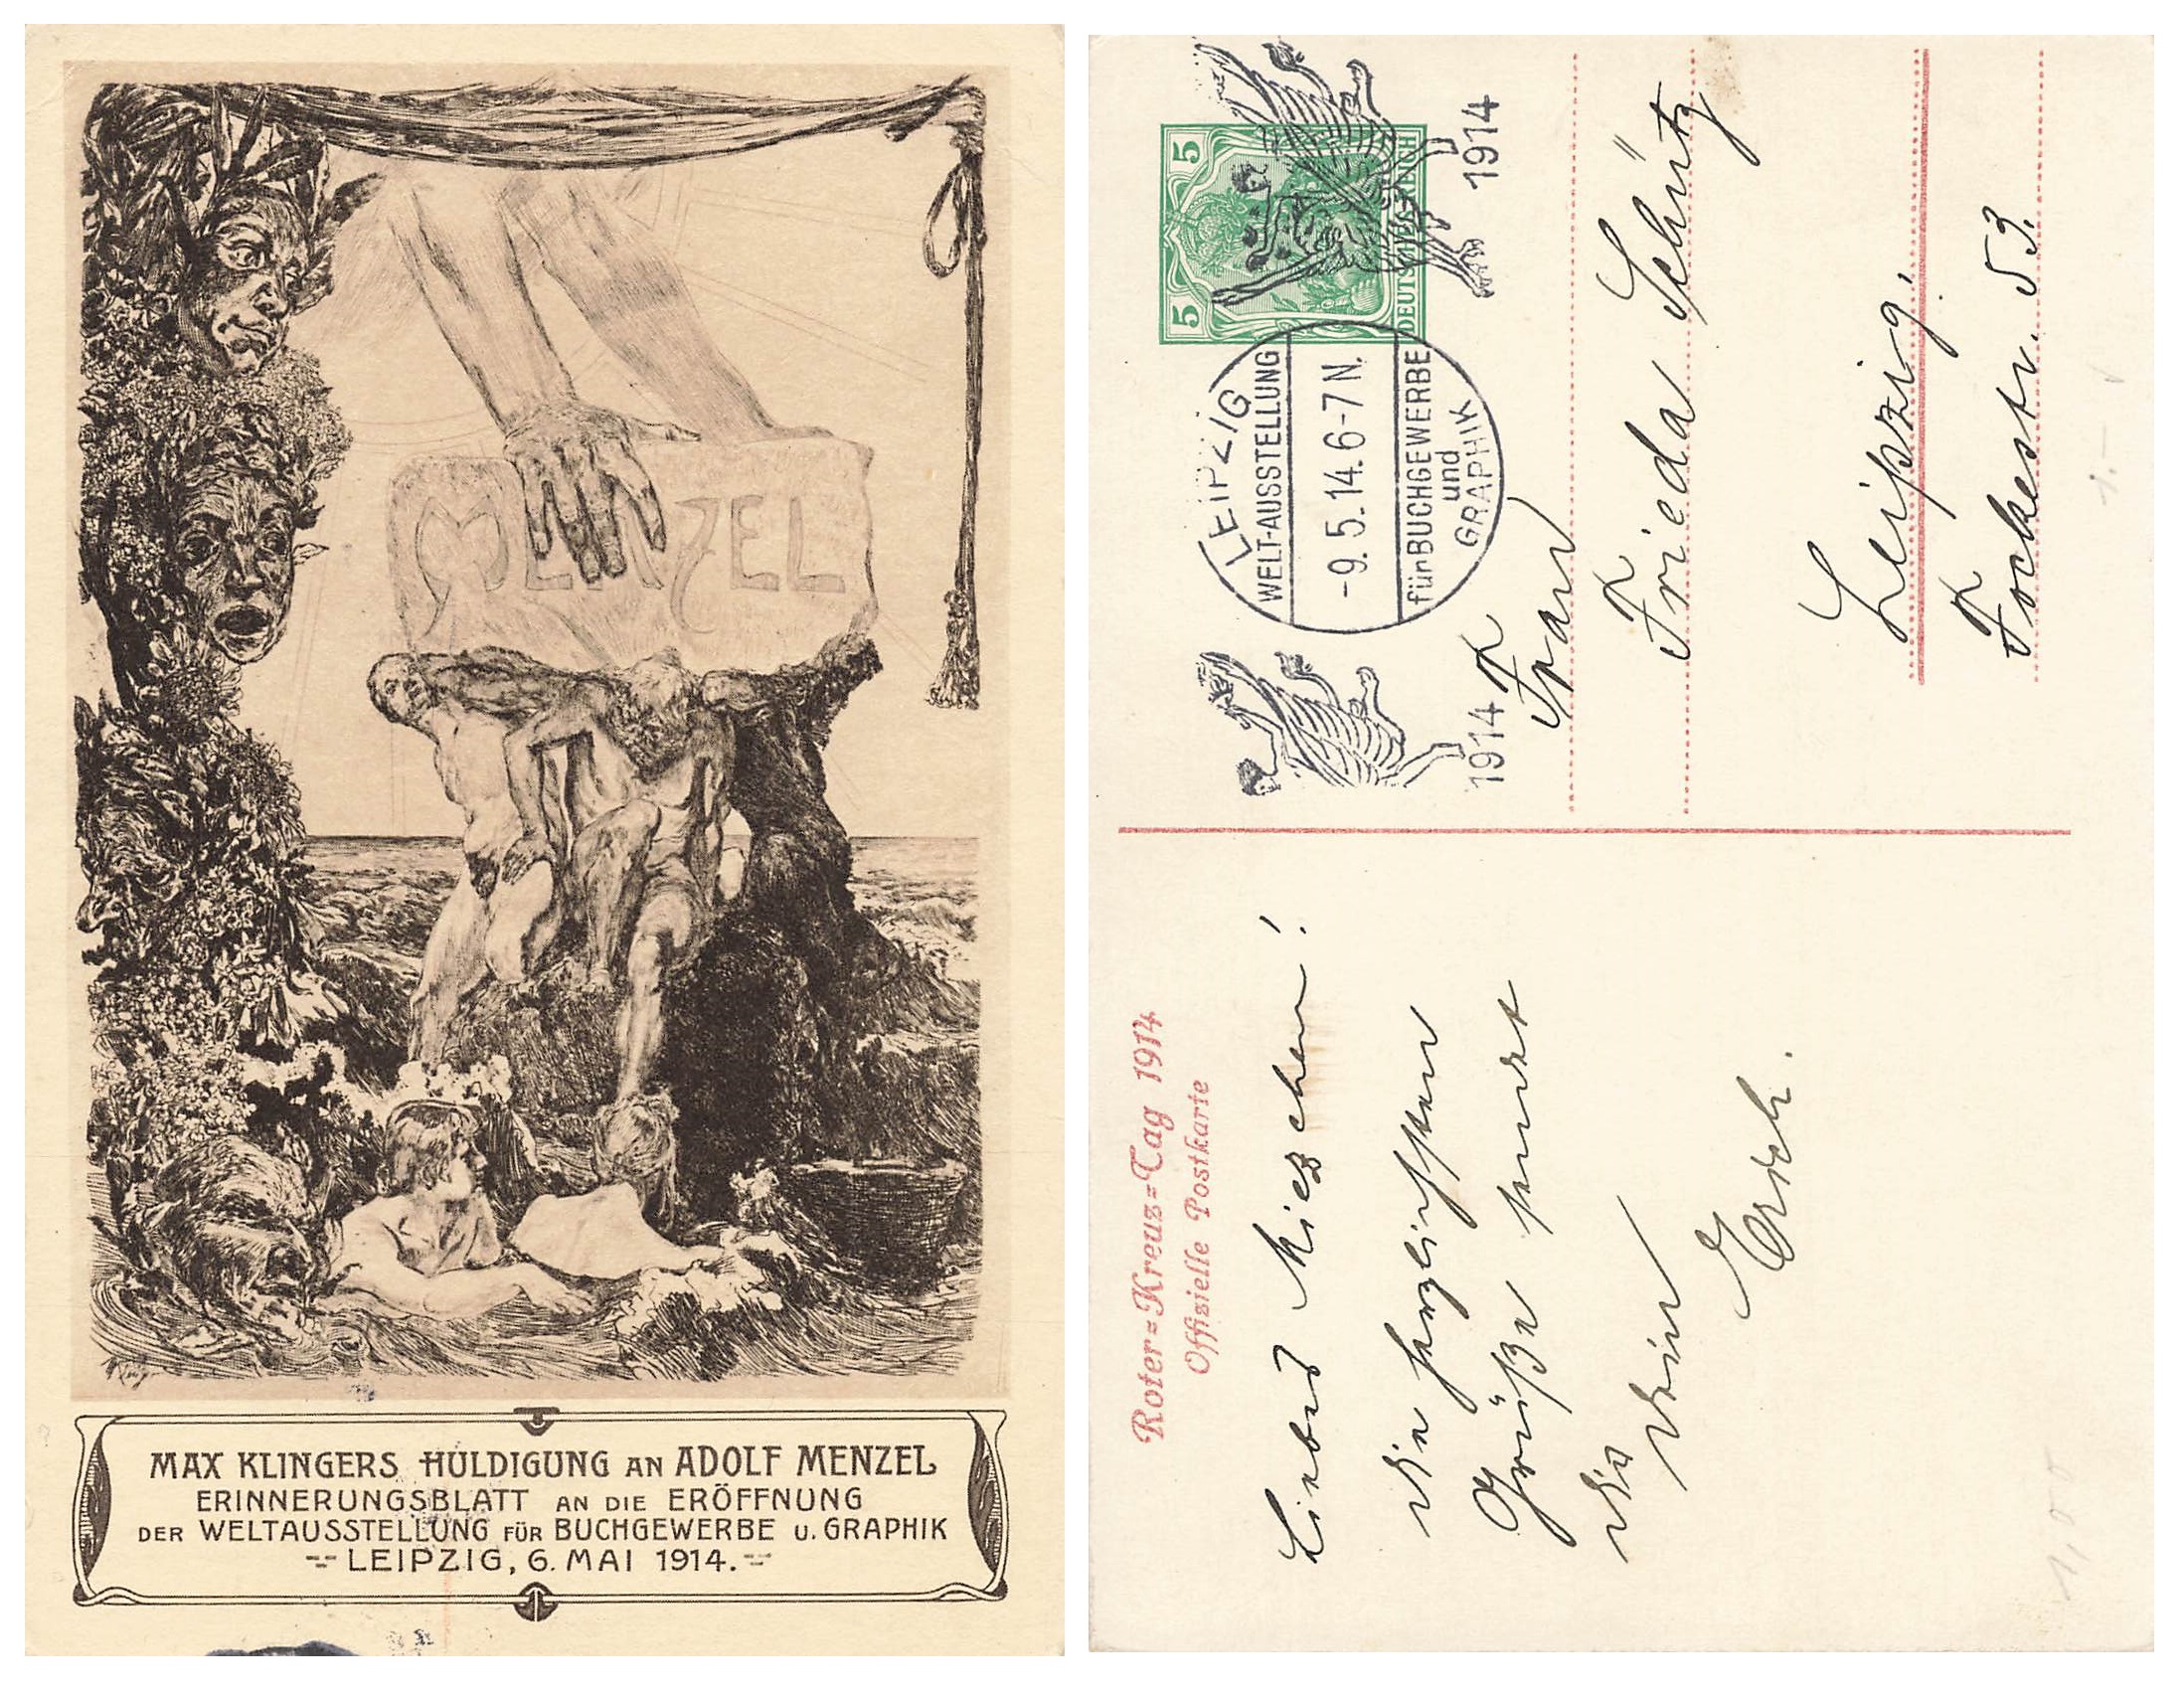 MENZEL
MAX KLINGERS HULDIGUNG AN ADOLF MENZEL
ERINNERUNGSBLATT AN DIE ERÖFFNUNG
DER WELTAUSSTELLUNG FÜR BUCHGEWERBE U. GRAPHIK
LEIPZIG, 6. MAI 1914.
Roter=Kreuz=Tag 1914
Offizielle Postkarte
Liebes Miezchen!
Die herzlichsten
Grüße sendet
Dir
Dein
Erich.
5 5
DEUTSCHES REICH
1914
LEIPZIG
WELT-AUSSTELLUNG
-9.5.14.6-7 N.
für BUCHGEWERBE
und
GRAPHIK
1914
Frau
Frieda Schütz
Leipzig,
Fockestr. 53.